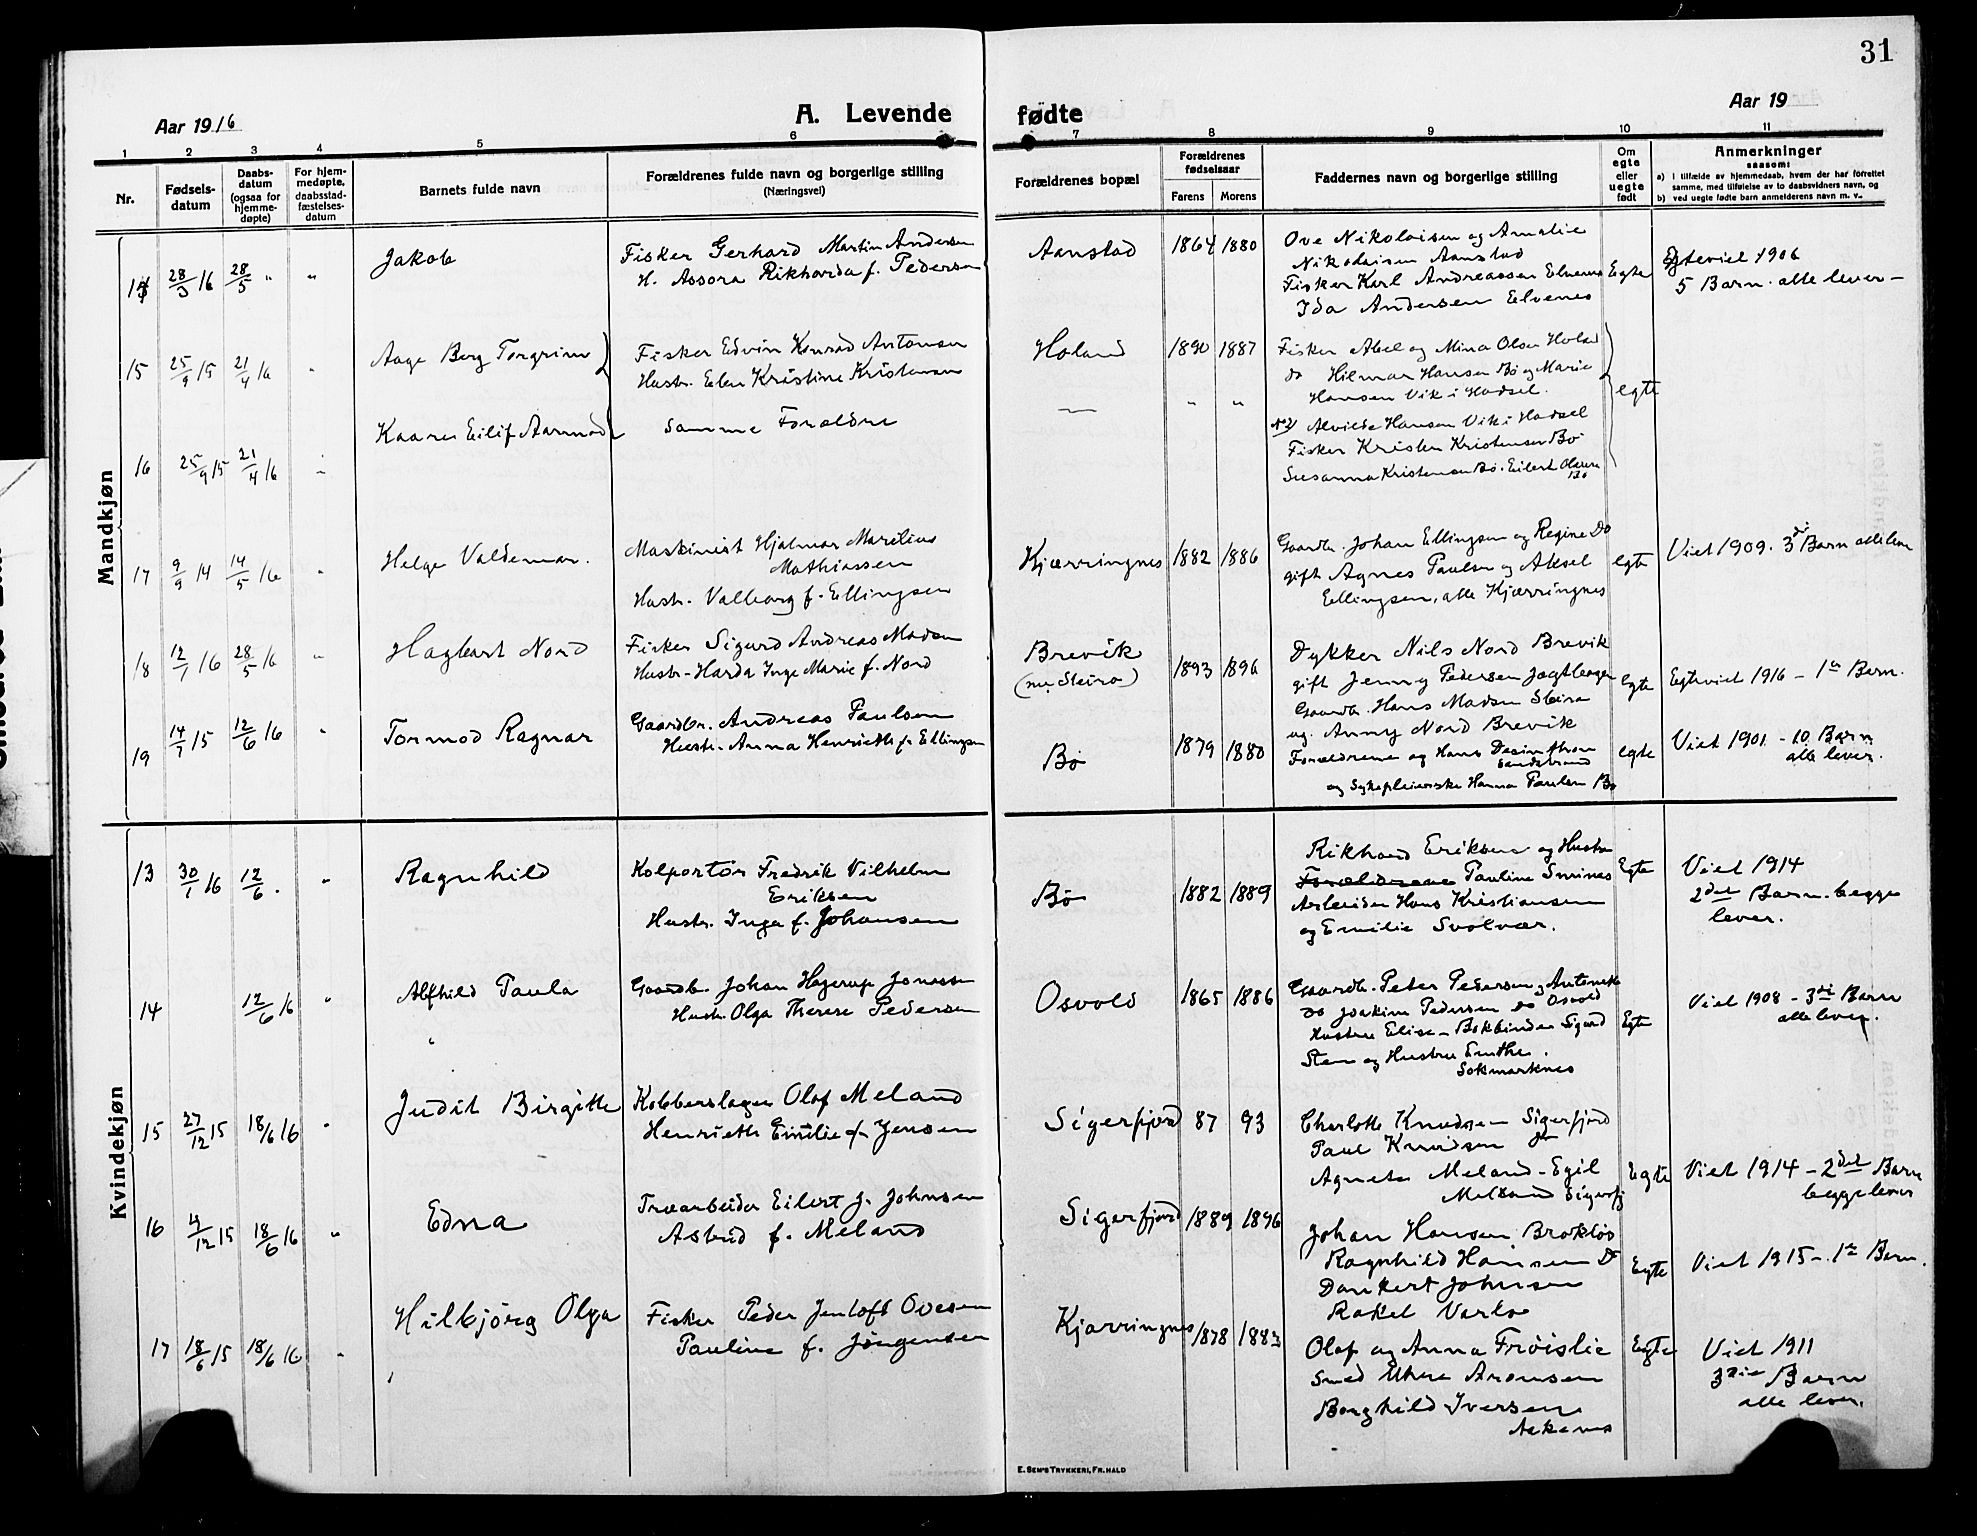 31
Aar 1916
A. Levende
fødte
Aar 19
1 2 3 4 5 6 7 8 9 10 11
Nr.
Fødsels-
datum
Daabs-
datum
(ogsaa for
hjemme-
døpte)
For hjem-
medøpte,
daabsstad-
fæstelses-
datum
Barnets fulde navn
Forældrenes fulde navn og borgerlige stilling
(Næringsvei)
Forældrenes bopæl
Forældrenes
fødselsaar
Farens
Morens
Faddernes navn og borgerlige stilling
Om
egte
eller
uegte
født
Anmerkninger
saasom:
a) i tilfælde av hjemmedaab, hvem der har forrettet
samme, med tilføielse av to daabsvidners navn, og
b) ved uegte fødte barn anmelderens navn m. v.
Mandkjøn
14 28/3 16 28/5 " "
Jakob
Fisker Gerhard Martin Andersen
H. Assora Rikharda f. Pedersen
Aanstad
1864 1880
Ove Nikolaisen og Amalie
Nikolaisen Aanstad
Fisker Karl Andreassen Elvenes
Ida Andersen Elvenes
Egte
Egteviet 1906
5 Barn. alle lever –
15 25/9 15 21/4 16 "
Aage Berg Torgrim
Fisker Edvin Konrad Antonsen
Hustr. Elen Kristine Kristensen
Holand
1890 1887
Fisker Abel og Mina Olsen Holand
do Hilmar Hansen Bø og Marie
Hansen Vik i Hadsel.
egte
16 25/9 15 21/4 16
Kaare Eilif Aarmod
Samme Forældre
— " "
Alvilde Hansen Vik i Hadsel
Fisker Kristen Kristensen Bø
Susanna Kristensen Bø. Eilert Olsen
Bø
17 9/9 14 14/5 16 "
Helge Valdemar.
Maskinist Hjalmar Marelius
Mathiassen
Hustr. Valborg f. Ellingsen
Kjærringnes
1882 1886
Gaardbr. Johan Ellingsen og Regine Do
gift Agnes Paulsen og Aksel
Ellingsen, alle Kjærringnes
egte
Viet 1909. 3di Barn alle lever
18 12/1 16 28/5 16 "
Hagbart Nord
Fisker Sigurd Andreas Madsen
Hustr. Harda Inge Marie f. Nord
Brevik
(nu Steiro)
1893 1896
Dykker Nils Nord Brevik
gift Jenny Pedersen
Gaardbr. Hans Madsen Steiro
ug. Anny Nord Brevik
egte
Egteviet 1916 – 1te Barn.
19 14/7 15 12/6 16 "
Tormod Ragnar
Gaardbr. Andreas Paulsen
Hustr. Anna Henriette f. Ellingsen
Bø
1879 1880
Forældrene og Hans
Sandstrand
og Sykepleierske Hanna Paulsen Bø
egte
Viet 1901 – 10 Barn
alle lever.
Kvindekjøn
13 30/1 16 12/6. "
Ragnhild
Kolportør Fredrik Vilhelm
Eriksen
Hustr. Inga f. Johansen
Bø
1882 1889
Rikhard Eriksen og Hustru
Forældrene Pauline Smines
Arbeider Hans Kristiansen
og Emilie Svolvær.
Egte
Viet 1914
2det Barn. begge
lever.
14 12/6 16 "
Alfhild Paula
Gaardb. Johan Hagerup Jonassen
Hustr. Olga Therese Pedersen
Osvold
1865 1886
Gaardbr. Peter Pedersen og Antonette
do Joakim Pedersen do Osvold
Hustru Elise – Bokbinder Sigurd
Steen og Hustru
Sokmarknes
Egte
Viet 1908 – 3di Barn
alle lever.
15 27/12 15 18/6 16 "
Judit Birgitte
Kobberslager Olaf Meland
Henriette Emilie f. Jensen
Sigerfjord
87 93
Charlotte Knudsen Sigerfjord
Paul Knudsen Jr
Agnete Meland – Egil
Meland Sigerfj
Egte
Viet 1914 – 2det Barn
begge lever
16 4/12 15 18/6 16 "
Edna
Træarbeider Eilert J. Johnsen
Astrid f. Meland
Sigerfjord
1889 1896
Johan Hansen Brokløs
Ragnhild Hansen Do
Dankert Johnsen
Rakel
Egte
Viet 1915 – 1te Barn.
17 18/6 15 18/6 16 "
Hilbjörg Olga
Fisker Peder Jentoft Ovesen
Pauline f. Jörgensen
Kjærringnes
1878 1883
Olaf og Anna Frøislie
Smed Aronsen
Borghild Iversen
Egte
Viet 1911
3die Barn
alle lever.
E. SEM'S TRYKKERI, FR.HALD